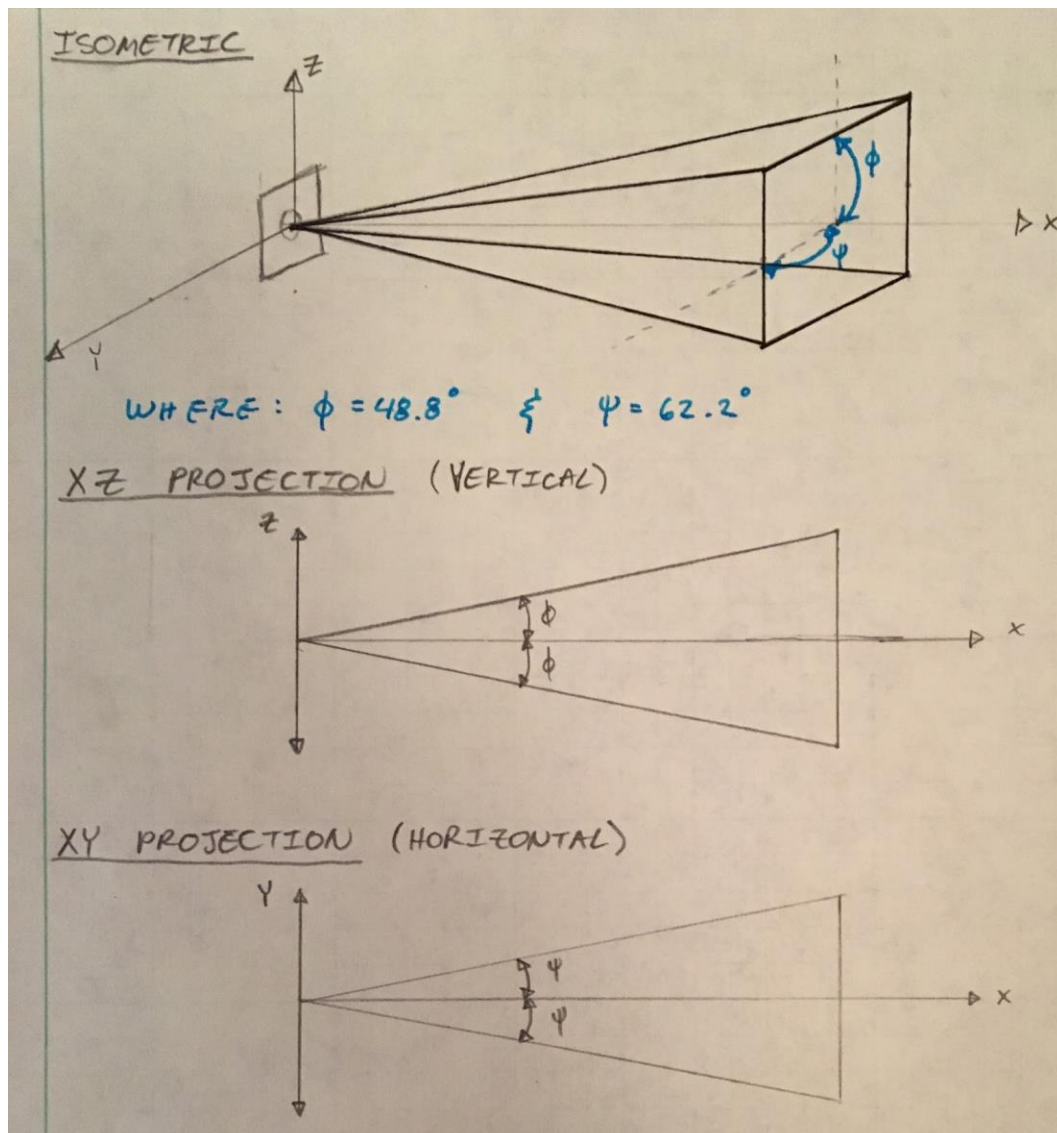 ISOMETRIC
Z
ϕ
X
ψ
Y
WHERE: ϕ = 48.8° & ψ = 62.2°
XZ PROJECTION (VERTICAL)
Z
ϕ
X
ϕ
XY PROJECTION (HORIZONTAL)
Y
ψ
X
ψ